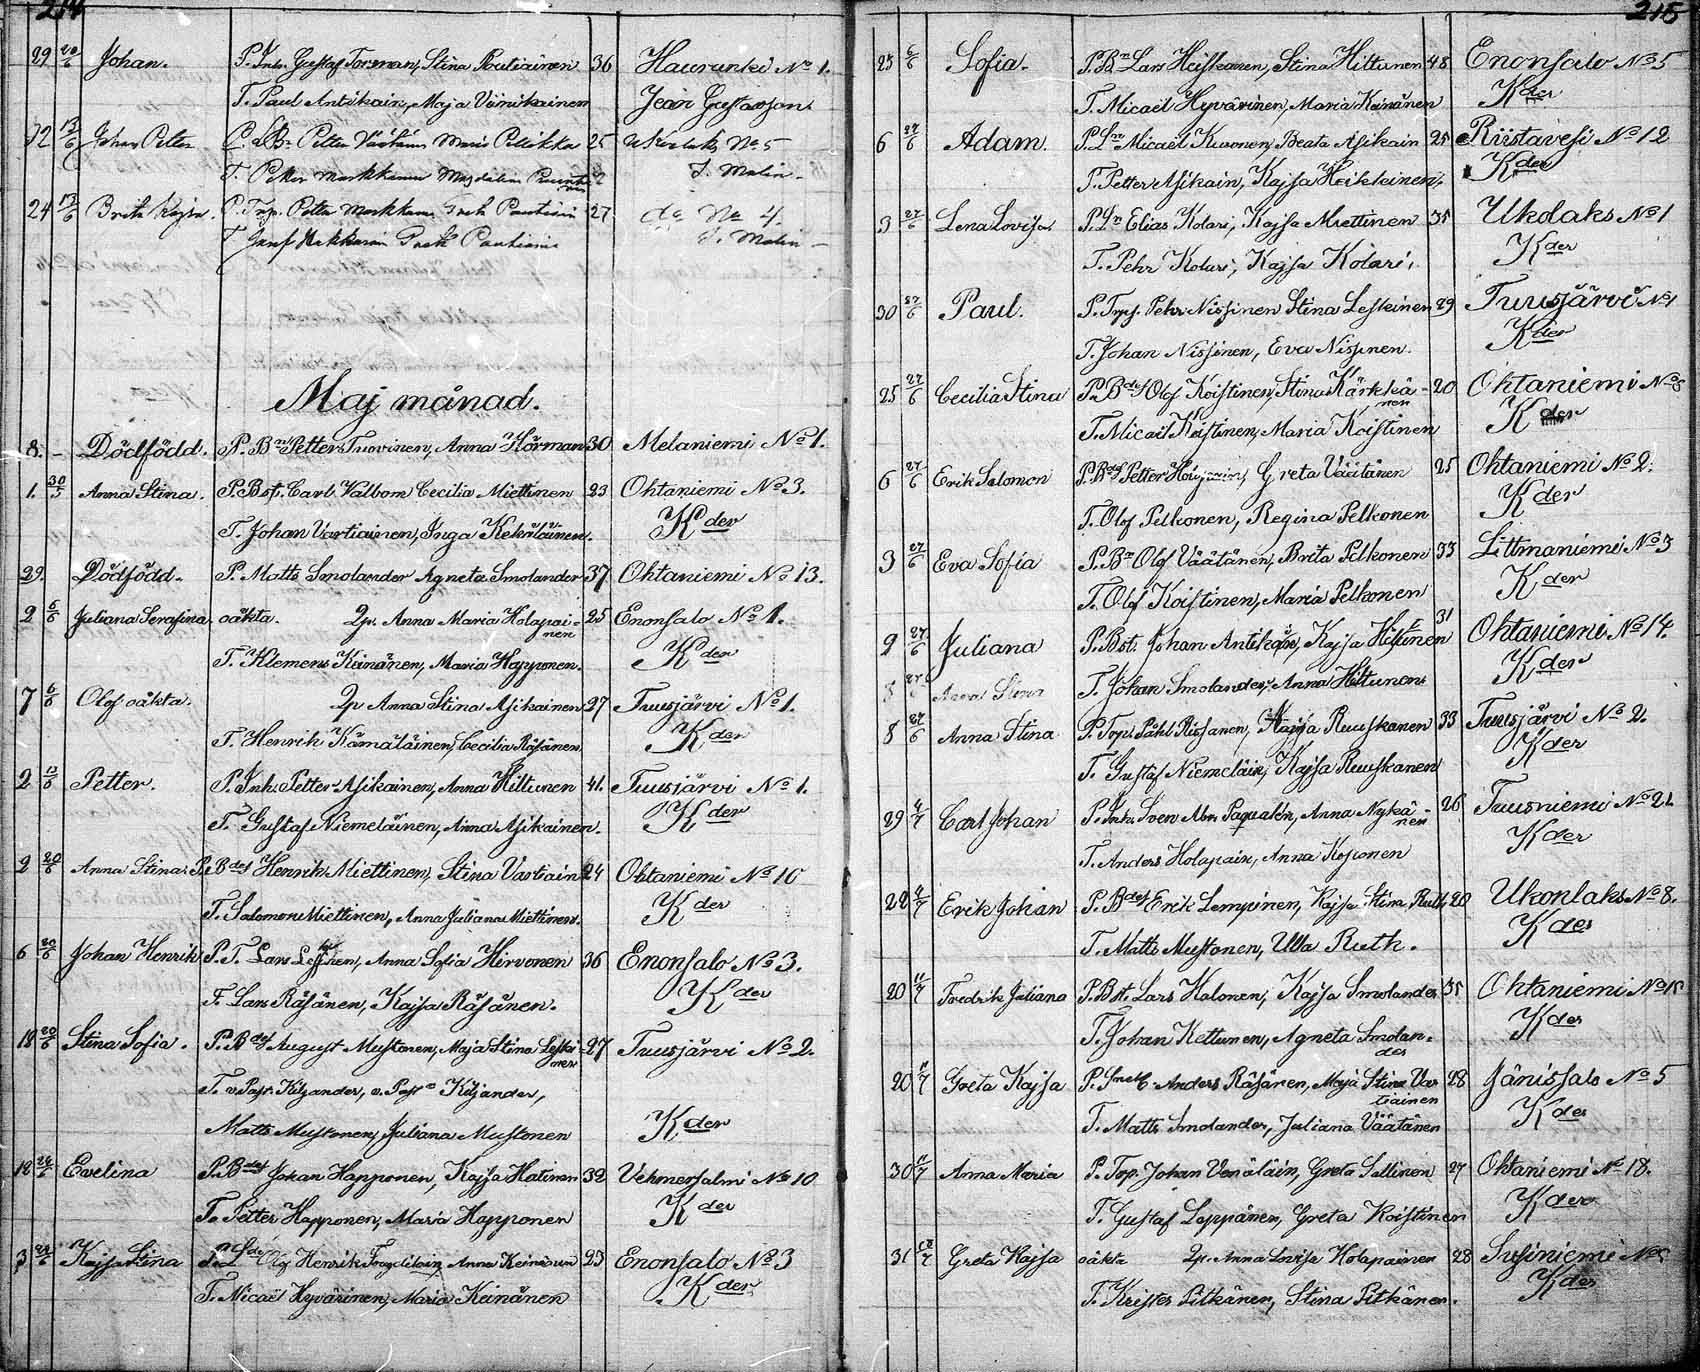 214
29 20/6 Johan. P. Inh. Gustaf Torsman, Stina Poutiainen 36 Haurunki No 1.
T. Paul Antikain, Maja Viinikainen Jean Gustafson
12/6 Johan Petter 25 No 5
T. Petter Markkanen Magdalena J. Malin
24 12/6 Brita Kajsa. P. Trp. Petter Markkanen 27 de No 4.
T. J. Malin
Maj månad.
8. - Dödfödd. P. Bn Petter Tuovinen, Anna Hörman 30 Melaniemi No 1.
1. 30/5 Anna Stina. P. Bst. Carl Valbom Cecilia Miettinen 23 Ohtaniemi No 3.
T. Johan Vartiainen, Inga Kekäläinen. Kder
29. Dödfödd. P. Matts Smolander Agneta Smolander 37 Ohtaniemi No 13.
2 6/6 Juliana Serafina. oäkta. Qp. Anna Maria Holapai- 25 Enonsalo No 1.
nen
T. Klemens Keinänen, Maria Happonen. Kder
7 6/6 Olof oäkta. Qp Anna Stina Asikainen 27 Tuusjärvi No 1.
T. Henrik Kämäläinen, Cecilia Räsänen Kder
2 13/6 Petter. P. Inh. Petter Asikainen, Anna Hiltunen 41. Tuusjärvi No 1.
T. Gustaf Niemeläinen, Anna Asikainen. Kder
2 20/6 Anna Stina. P. Bdes Henrik Miettinen, Stina Vartiain 24 Ohtaniemi No 10
T. Salomon Miettinen, Anna Juliana Miettinen. Kder
6 20/6 Johan Henrik P. T. Lars Anna Sofia Hirvonen 36 Enonsalo No 3.
T. Lars Räsänen, Kajsa Räsänen. Kder
18 20/6 Stina Sofia. P. Bdes August Mustonen, Maja Stina Leski- 27 Tuusjärvi No 2.
nen
T. v. Past. Kiljander, v. Past Kiljander,
Matts Mustonen, Juliana Mustonen Kder
12 24/6 Evelina P. Bdes Johan Happonen, Kajsa Hatinen 32 Vehmersalmi No 10
T. Petter Happonen, Maria Happonen Kder
3 24/6 Kajsa Stina Henrik Anna Keinänen 23 Enonsalo No 3
T. Micaël Hyvärinen, Maria Keinänen Kder
215
25 6/6 Sofia. P. Bn Lars Heiskanen, Stina Hiltunen 48 Enonsalo No 5
T. Micaël Hyvärinen, Maria Keinänen Kder
6 27/6 Adam. P. Ln Micaël Kuronen, Beata Asikain 25 Riistavesi No 12
T. Petter Asikain, Kajsa Heikkinen. Kder
3 27/6 Lena Lovisa P. Ln Elias Kolari, Kajsa Miettinen 35 Ukolaks No 1
T. Pehr Kolari, Kajsa Kolari. Kder
30 27/6 Paul. P. Trp. Pehr Nissinen Stina Leskeinen 29 Tuusjärvi No 1
T. Johan Nissinen, Eva Nissinen. Kder
25 27/6 Cecilia Stina P. Bdes Olof Koistinen, Stina Kärkkä- 20 Ohtaniemi No 8
nen
T. Micaël Koistinen, Maria Koistinen Kder
6 27/6 Erik Salomon P. Bdes Petter Greta Väätänen 25 Ohtaniemi No 2.
T. Olof Pelkonen, Regina Pelkonen Kder
3 27/6 Eva Sofia P. Bn Olof Väätänen, Brita Pelkonen 33 Littmaniemi No 3
T. Olof Koistinen, Maria Pelkonen Kder
9 27/6 Juliana P. Bst. Johan Antikain, Kajsa Hiltunen 31 Ohtaniemi No 14.
8 27/6 Anna Stina T. Johan Smolander, Anna Hiltunen Kder
8 27/6 Anna Stina P. Trp. Påhl Rissanen, Kajsa Ruuskanen 33 Tuusjärvi No 2.
T. Gustaf Niemeläin, Kajsa Ruuskanen Kder
29 4/7 Carl Johan P. Inh. Sven Abr. Paqualén, Anna Nykä- 26 Tuusniemi No 21.
nen
T. Anders Holapain, Anna Koponen Kder
22 4/7 Erik Johan P. Bdes Erik Lempinen, Kajsa Stina Ruth 28 Ukonlaks No 8.
T. Matts Mustonen, Ulla Ruth. Kder
20 11/7 Fredrik Juliana P. Bst. Lars Halonen, Kajsa Smolander 35 Ohtaniemi No 15
T. Johan Kettunen, Agneta Smolan- Kder
der
20 11/7 Greta Kajsa P. Anders Räsänen, Maja Stina Var 28 Jänissalo No 5
tiainen
T. Matts Smolander, Juliana Väätänen Kder
30 11/7 Anna Maria P. Trp. Johan Venäläin, Greta Sallinen 27 Ohtaniemi No 18.
T. Gustaf Leppänen, Greta Koistinen Kder
31 18/7 Greta Kajsa oäkta Qp. Anna Lovisa Holapainen 28 Susiniemi No
T. Krister Pitkänen, Stina Pitkänen. Kder